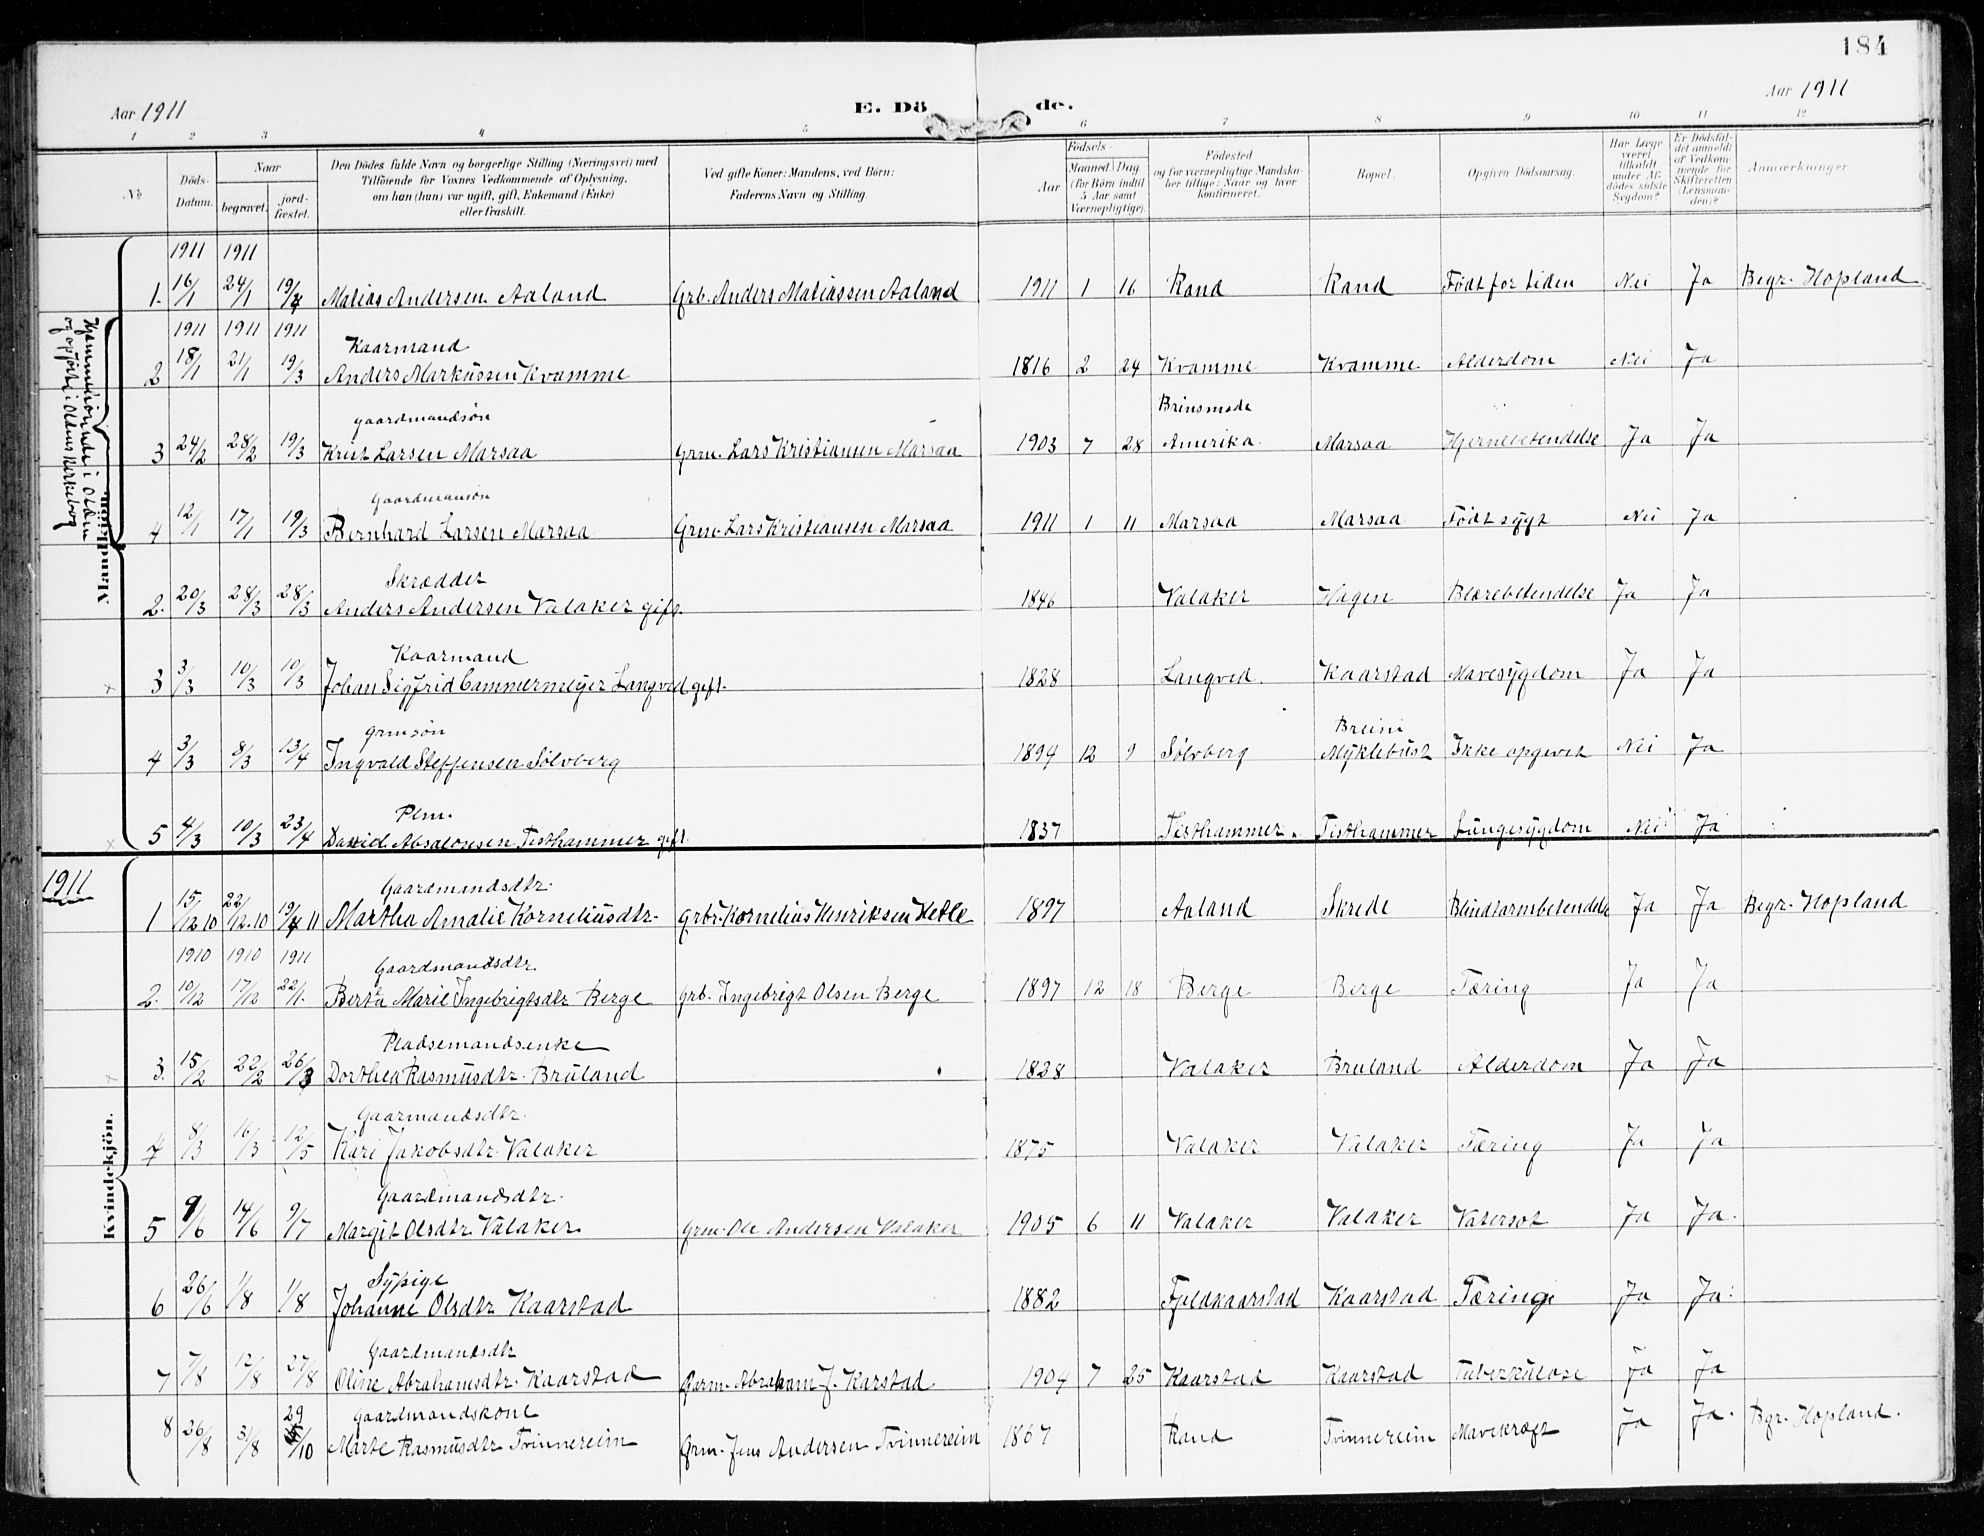 184
Aar 1911
E. Dö de.
Aar 1911
1 2 3 4 5 6 7 8 9 10 11 12
No
Döds-Datum.
Naar
begravet.
jordfæstet.
Den Dödes fulde Navn og borgerlige Stilling (Næringsvei) med
Tilföiende for Voxnes Vedkommende af Oplysning,
om han (hun) var ugift, gift, Enkemand (Enke)
eller fraskilt.
Ved gifte Koner: Mandens, ved Börn:
Faderens Navn og Stilling.
Födsels-
Aar
Maaned Dag
(for Börn indtil
5 Aar samt
Værnepligtige).
Födested
og for værnepligtige Mandskaber tillige: Naar og hvor
konfirmeret.
Bopæl.
Opgiven Dödsaarsag.
Har Læge
været
tilkaldt
under Afdödes sidste
Sygdom?
Er Dödsfaldet anmeldt
af Vedkommende for
Skifteretten
(Lensmanden)?
Anmærkninger.
Mandkjön.
Hjemmehörende i Olden
og opfört i Oldens kirkebog
1911 1911
1. 16/1 24/1 19/4 Matias Andersen Aaland Grb. Anders Matiassen Aaland 1911 1 16 Rand Rand Födt for tiden Nei Ja Begr. Hopland
1911 1911 1911
Kaarmand
2 18/1 21/1 19/3 Anders Markussen Kvamme 1816 2 24 Kvamme Kvamme Alderdom Nei Ja
gaardmandsön Brinsmade
3 24/2 28/2 19/3 Krist Larsen Marsaa Grm. Lars Kristiansen Marsaa 1903 7 28 Amerika Marsaa Hjernebetendelse Ja Ja
Gaardmansön
4 12/1 17/1 19/3 Bernhard Larsen Marsaa Grm. Lars Kristiansen Marsaa 1911 1 11 Marsaa Marsaa Födt sygt Nei Ja
Skrædder
2. 20/3 28/3 28/3 Anders Andersen Valaker gift. 1846 Valaker Hagen Blærebetendelse Ja Ja
Kaarmand
3 3/3 10/3 10/3 Johan Sigfrid Cammermeyer Langved gift. 1828 Langved. Kaarstad Mavesygdom Ja Ja
grmsön Breim
4 3/3 8/3 13/4 Ingvald Steffensen Sölvberg 1894 12 9 Sölvberg Myklebust Ikke opgivet Nei Ja
Plm.
5 4/3 10/3 23/4 David Absalonsen Tisthammer gift. 1837 Tisthammer Tisthammer Lungesygdom Nei Ja
1911
Kvindekjön.
Gaardmandsdtr.
1 15/12 10 22/12.10 19/4 11 Martha Amalie Korneliusdtr. Grbr. Kornelius Henriksen Hetle 1897 Aaland Skrede Blindtarmbetendelse Ja Ja Begr. Hopland
1910 1910 1911
Gaardmandsdtr.
2. 10/12 17/12 22/1. Berta Marie Ingebrigtsdtr Berge Grb. Ingebrigt Olsen Berge 1897 12 18 Berge Berge Tæring Ja Ja
Pladsemandsenke
3. 15/2 22/2 26/3 Dorthea Rasmusdtr. Bruland 1828 Valaker Bruland Alderdom Ja Ja
Gaarmandsdtr.
4 8/3 16/3 12/5 Kari Jakobsdtr. Valaker 1875 Valaker Valaker Tæring Ja Ja
Gaardmandsdtr.
5 9/6 14/6 9/7 Margit Olsdtr Valaker Grm. Ole Andersen Valaker 1905 6 11 Valaker Valaker Vatersot Ja Ja.
Sypige
6 26/6 1/8 1/8 Johanne Olsdtr Kaarstad 1882 Fjeldkaarstad Kaarstad Tæring Ja Ja
Gaardmandsdtr
7 7/8 12/8 27/8 Oline Abrahamsdtr. Kaarstad Garm. Abraham J. Karstad 1904 7 25 Kaarstad Kaarstad tuberkulose Ja Ja
Gaardmandskone
8 26/8 3/8 29/10 Marte Rasmusdtr Tvinnereim Grm. Jens Andersen Tvinnereim 1867 Rand Tvinnereim Mavekræft Ja Ja. Bgr. Hopland.